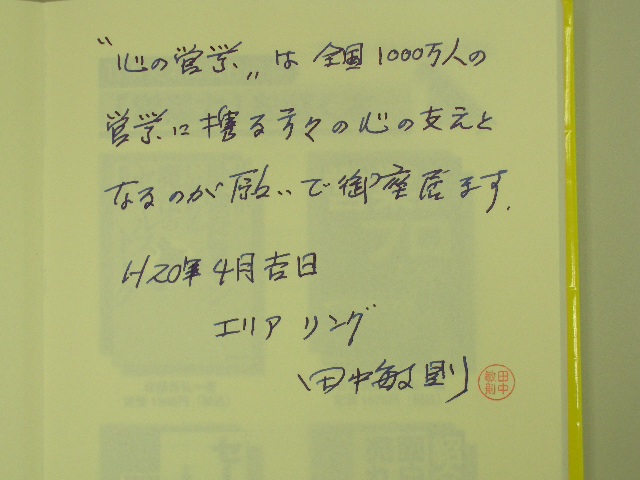 "心の営業"は全国1000万人の
営業に携る方々の心の支えと
なるのが願いで御座居ます.
H20年4月吉日
エリアリング
田中敏則
田中敏則